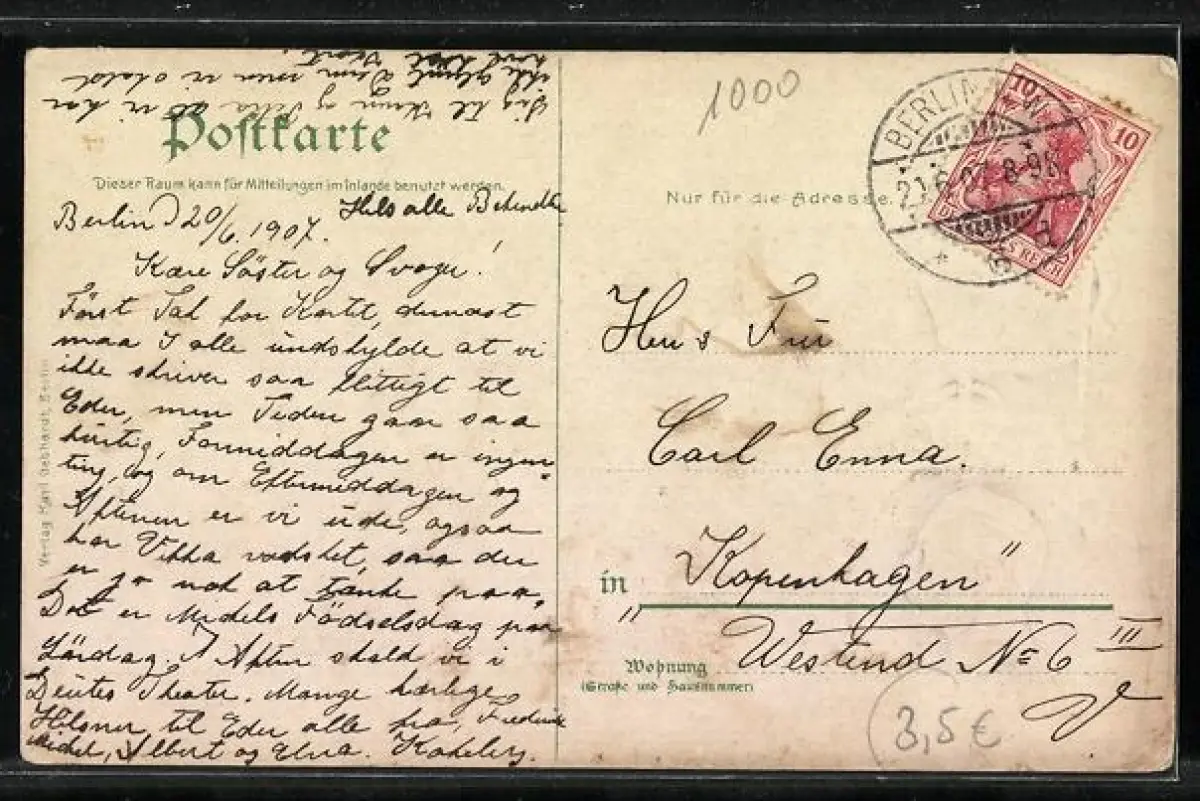 Postkarte
Dieser Raum kann für Mitteilungen im Inlande benutzt werden.
Hils alle Bekendte
Berlin D 20/6. 1907.
Kære Söster og Svoger!
Först Tak for Kortet, dernæst
maa I alle undskylde at vi
ikke skriver saa flittigt til
Eder, men Tiden gaar saa
hurtig, Formiddagen er ingen
ting, og om Eftermiddagen og
Aftenen er vi ude, ogsaa
har Vikka vadsket, saa der
er jo nok at tænke paa,
Det er Michels Födselsdag paa
Lördag. I Aften skald vi i
Deutes Theater. Mange hærlige
Hilsner til Eder alle fra, Frederik
Michel, Albert og Elna.
Verlag Karl Gebhardt, Berlin
1000
BERLIN W
8-9
10
10
DEUTSCHES REICH
Nur für die Adresse.
Frú
Carl Enna.
in "Kopenhagen"
" Westend № 6 III
Wohnung
(Straße und Hausnummer)
3,5 €